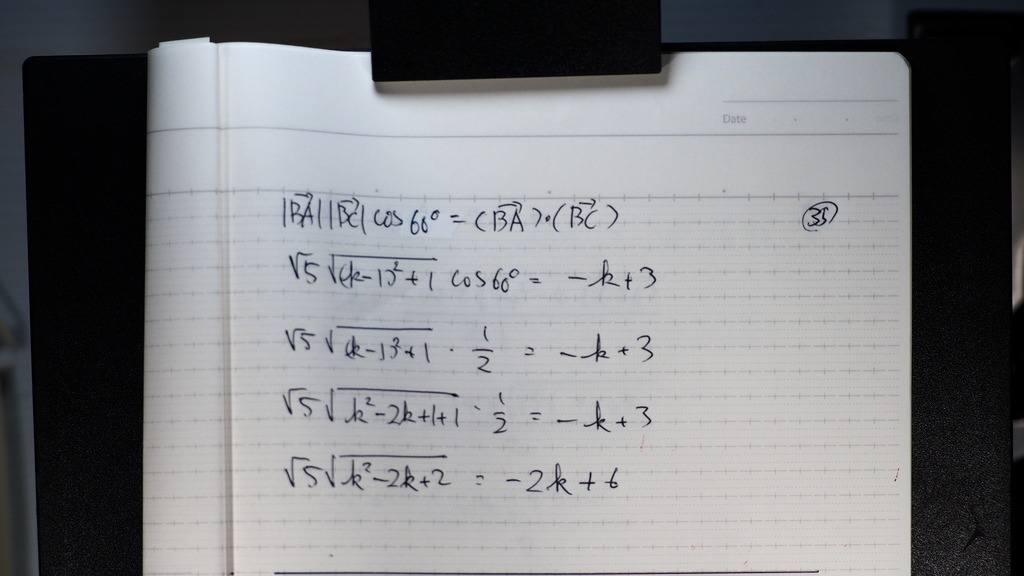 Date
|BA⃗||BC⃗| cos 60° = (BA⃗)·(BC⃗) ㉟
√5 √((k-1)²+1) cos 60° = -k+3
√5 √((k-1)²+1) · 1/2 = -k+3
√5 √(k²-2k+1+1) · 1/2 = -k+3
√5 √(k²-2k+2) = -2k+6